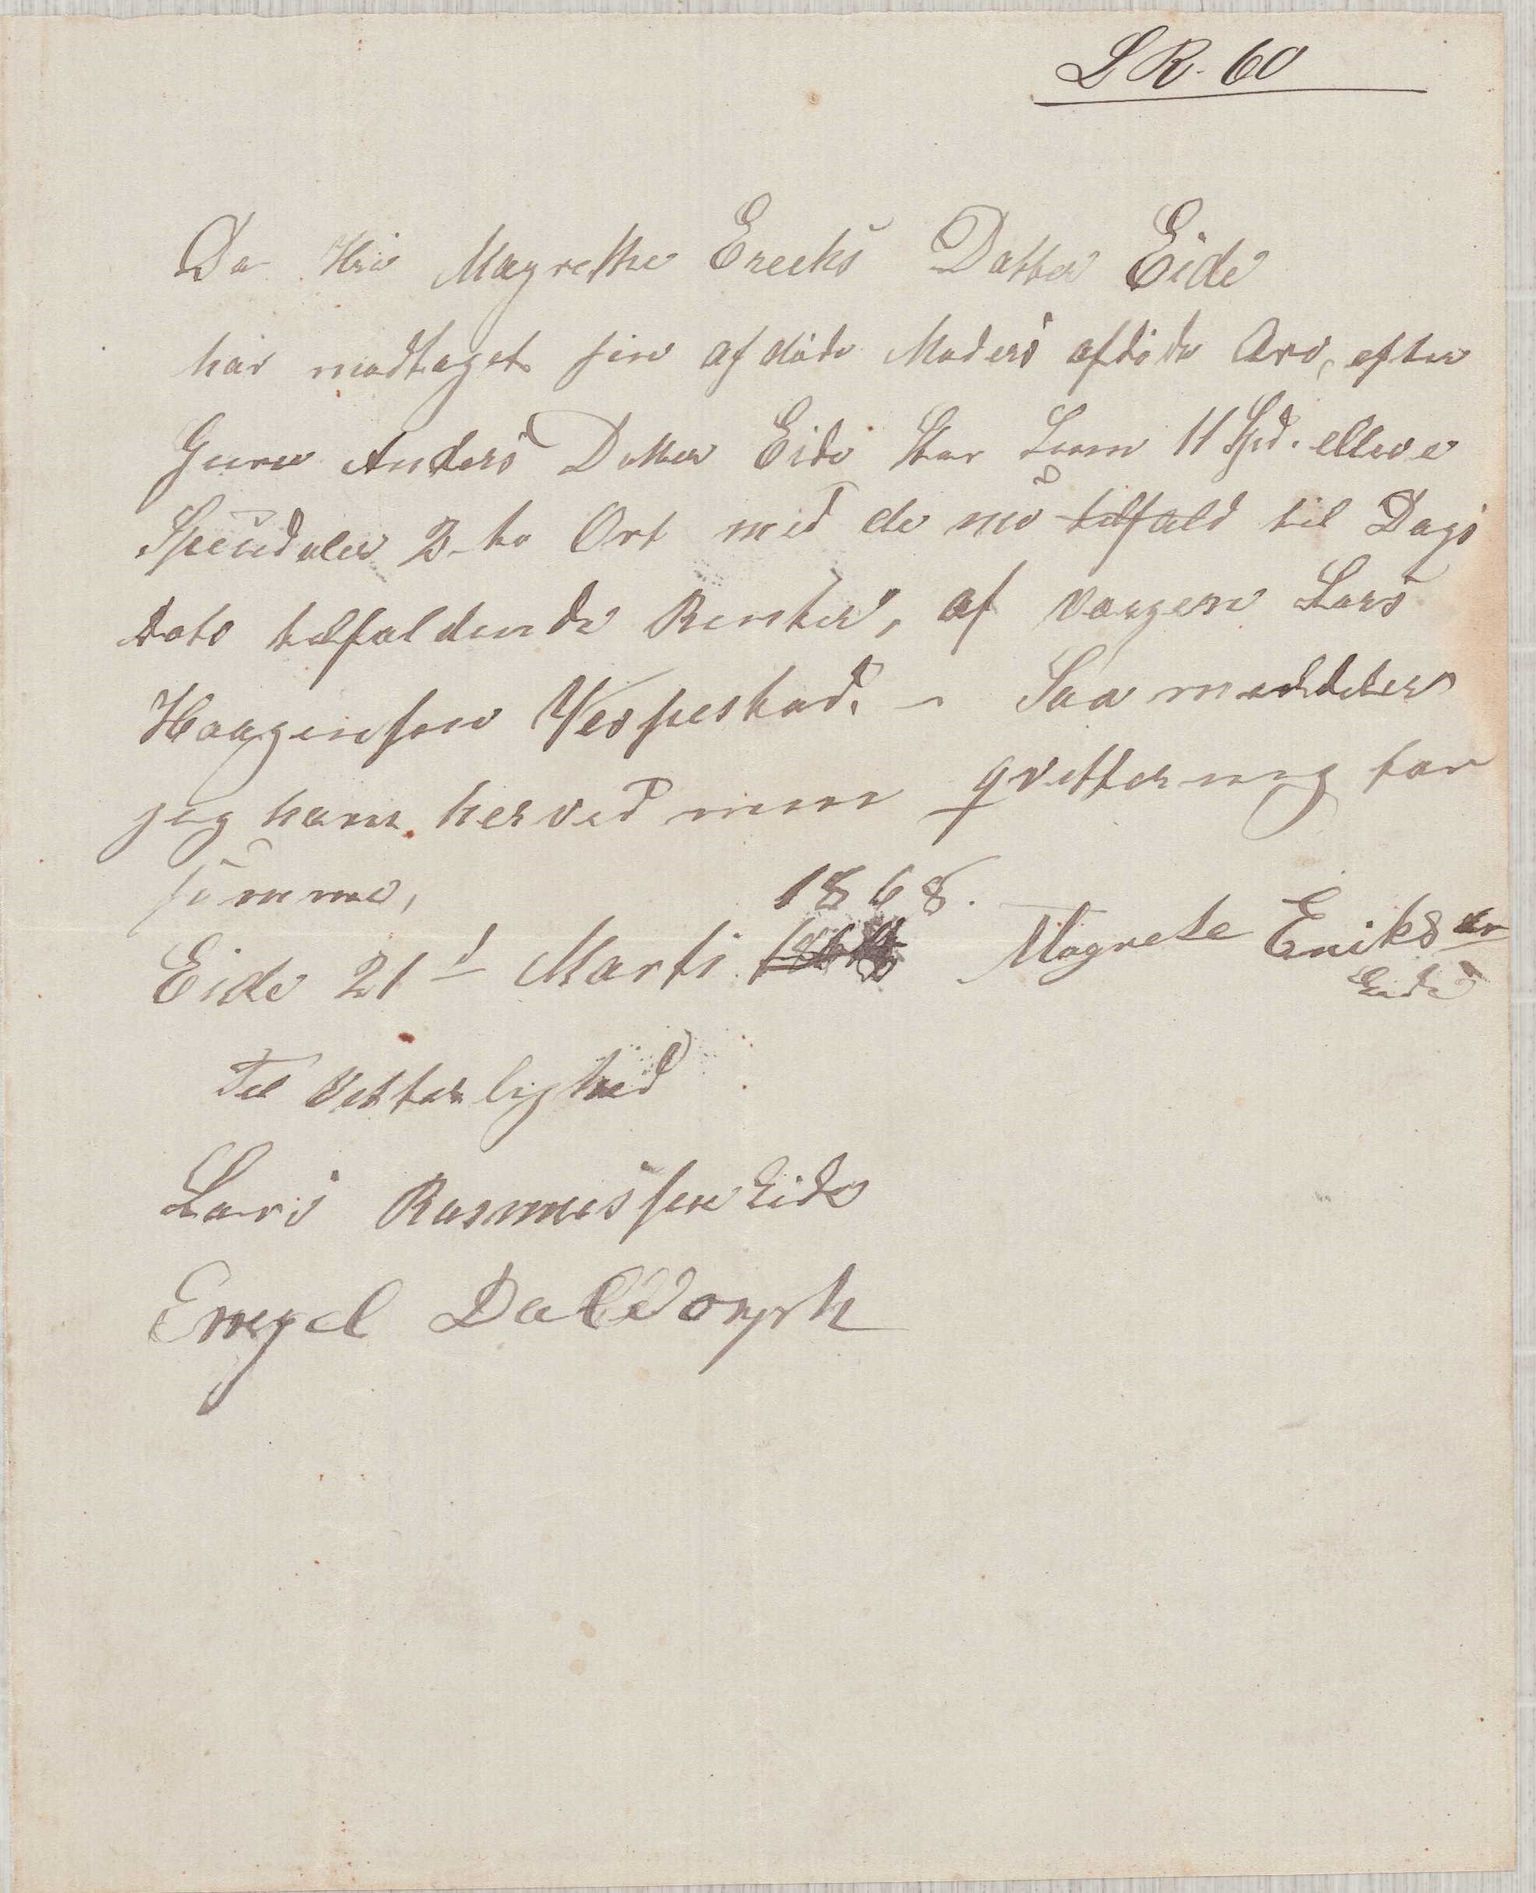 L R. 60
Da Magrethe Erecks Datter Eide
har modtaget sin afdøde Moders afdøde Arv, efter
Guru Anders Datter Eide Stor Sum 11 Spd. elleve
Speciedaler 2 to Ort med de nu tilfald til Dags
Dato tilfaldende Renter, af Værgen Lars
Haagensen Vespestad. - Saa meddeler
jeg ham herved min qvittering for
summa,
1868.
Eide 21 Marts Magrete Eriks dr
Eide
Til Vitterlighed
Lars Rasmussen Eide
Engel Daldorph